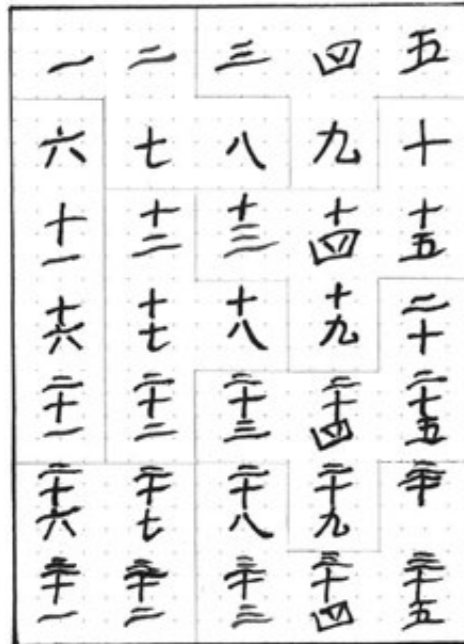 一 二 三 四 五
六 七 八 九 十
十一 十二 十三 十四 十五
十六 十七 十八 十九 二十
二十一 二十二 二十三 二十四 二十五
二十六 二十七 二十八 二十九 三十
三十一 三十二 三十三 三十四 三十五